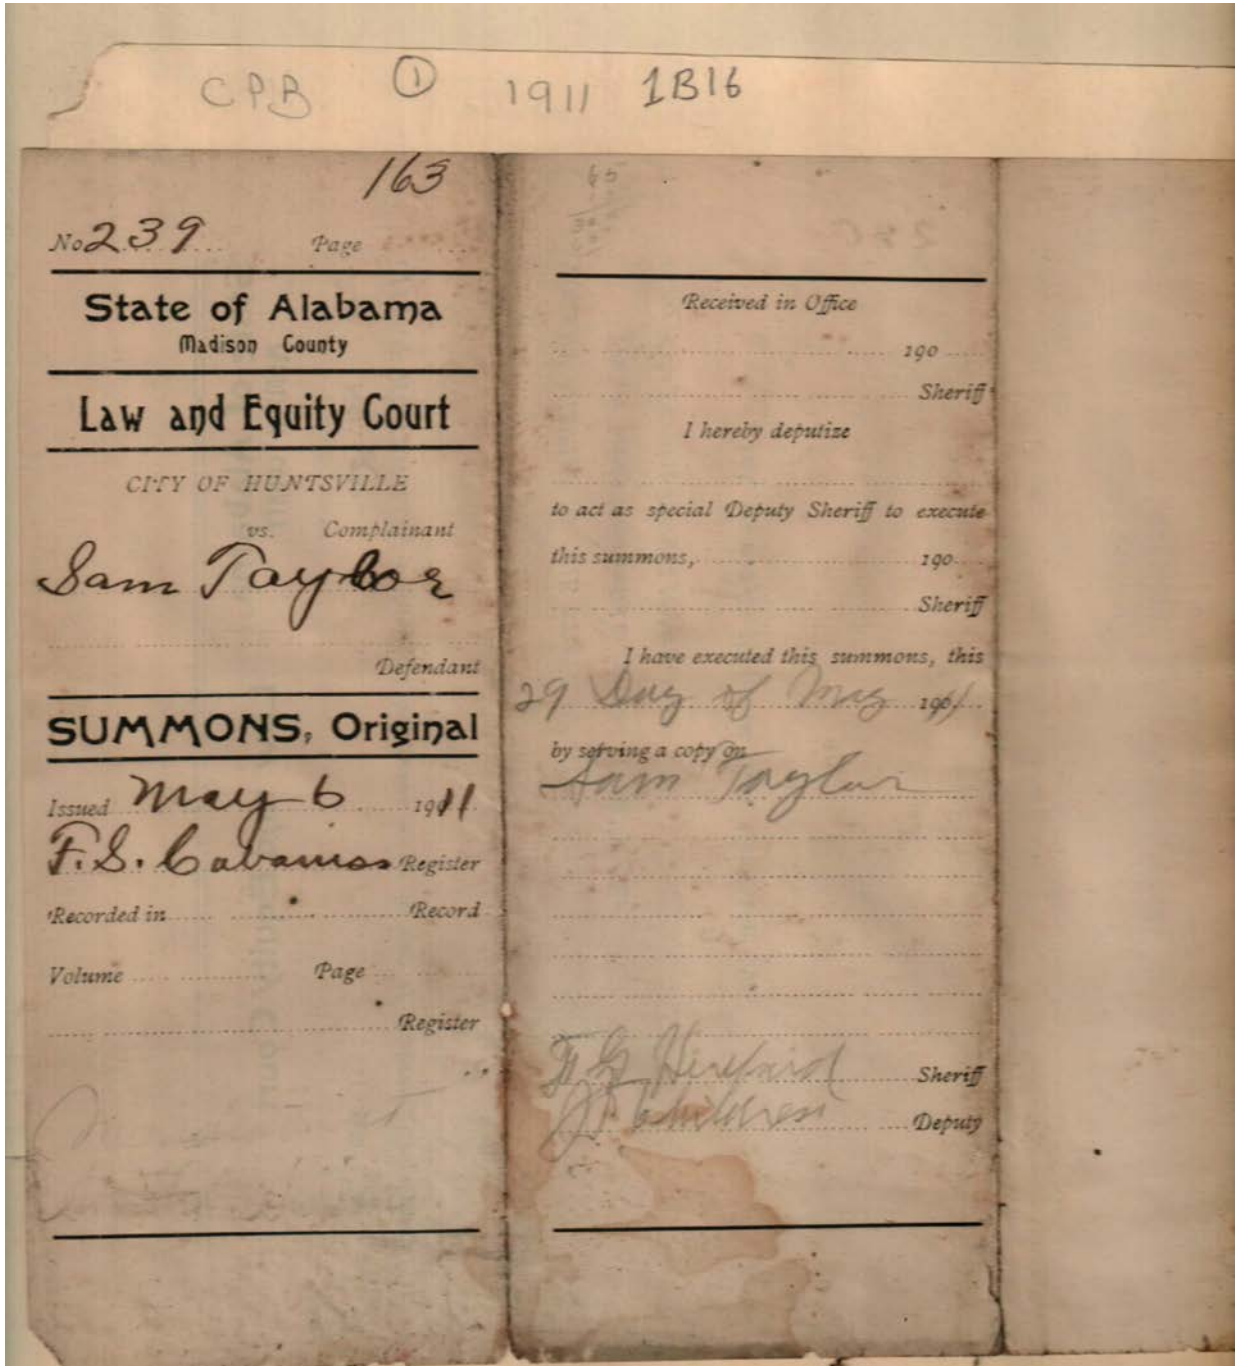 CPB ① 1911 1B16
163
No 239 Page
State of Alabama
Madison County
Law and Equity Court
CITY OF HUNTSVILLE
vs. Complainant
Sam Taylor
Defendant
SUMMONS, Original
Issued May 6 1911
F.S. Register
Recorded in Record
Volume Page
Register
Received in Office
190
Sheriff
I hereby deputize
to act as special Deputy Sheriff to execute
this summons, 190
Sheriff
I have executed this summons, this
29 Day of May 1911
by serving a copy on
Sam Taylor
Sheriff
Childress Deputy